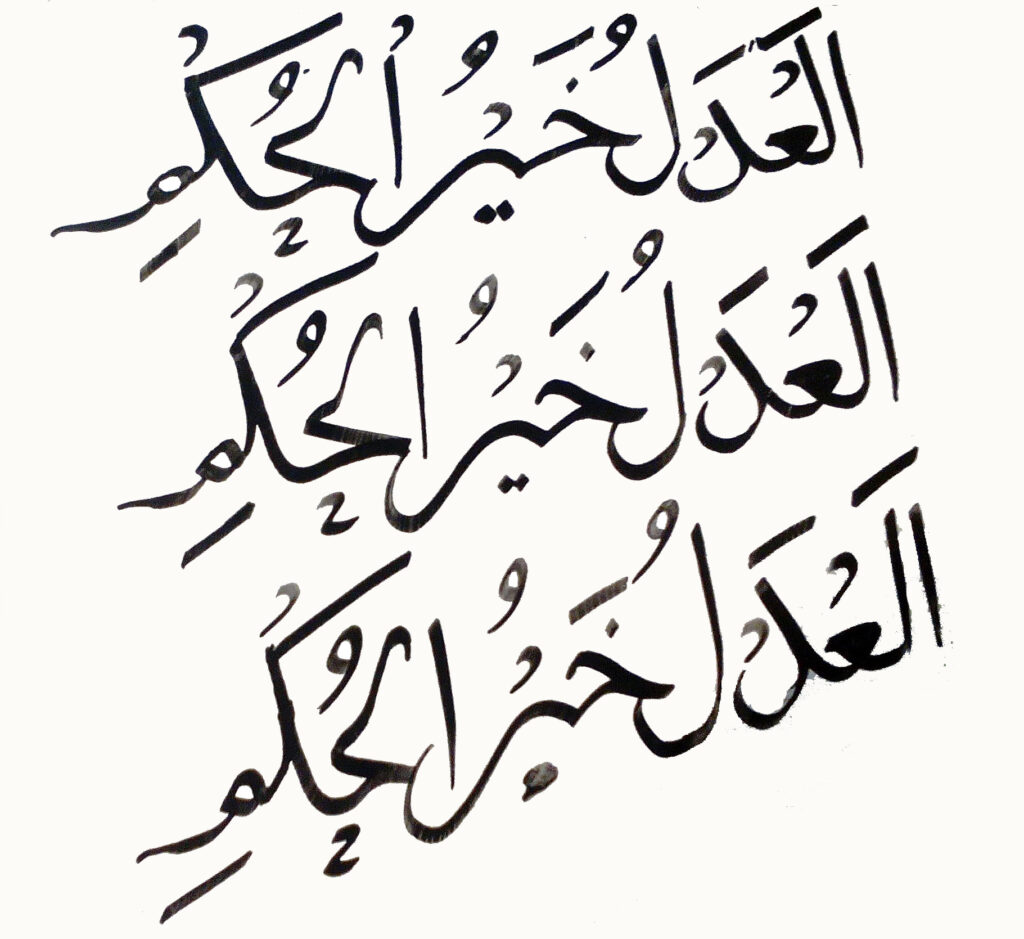 العَدلُ خَيرُ الحُكمِ
العَدلُ خَيرُ الحُكمِ
العَدلُ خَيرُ الحُكمِ